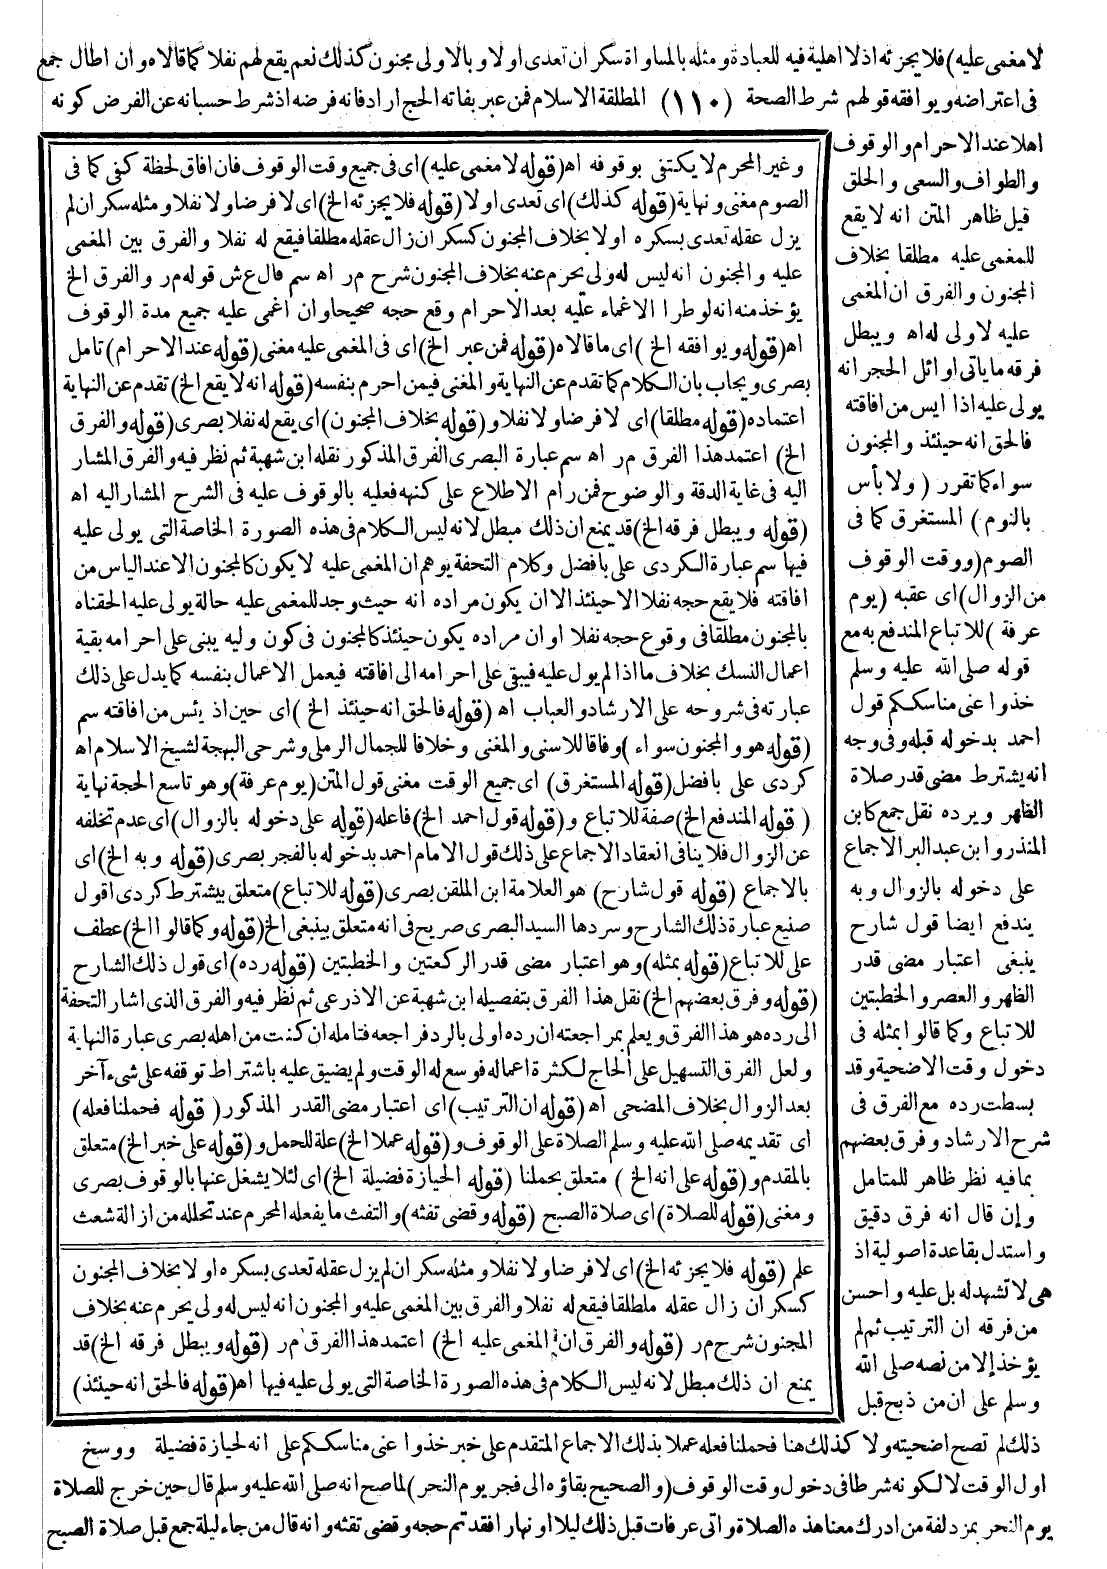 لا مغمى عليه) فلا يجزئه اذ لا اهلية فيه للعبادة ومثله بالمساواة سكران تعدى اولا وبالاولى مجنون كذلك نعم يقع لهم نفلا كما قالاه وان اطال جمع
فى اعتراضه ويوافقه قولهم شرط الصحة (١١٠) المطلقة الاسلام فمن عبر بفاته الحج ارادفاته فرضه اذ شرط حسبانه عن الفرض كونه
اهلا عند الاحرام والوقوف
والطواف والسعى والحلق
قيل ظاهر المتن انه لا يقع
للمغمى عليه مطلقا بخلاف
المجنون والفرق ان المغمى
عليه لا ولى له اه ويبطل
فرقه ما ياتى اوائل الحجر انه
يولى عليه اذا ايس من افاقته
فالحق انه حينئذ والمجنون
سواء كما تقرر (ولا بأس
بالنوم) المستغرق كما فى
الصوم (ووقت الوقوف
من الزوال) اى عقبه (يوم
عرفة) للاتباع المندفع به مع
قوله صلى الله عليه وسلم
خذوا عنى مناسككم قول
احمد بدخوله قبله وفى وجه
انه يشترط مضى قدر صلاة
الظهر ويرده نقل جمع كابن
المنذر وابن عبد البر الاجماع
على دخوله بالزوال وبه
يندفع ايضا قول شارح
ينبغى اعتبار مضى قدر
الظهر والعصر والخطبتين
للاتباع وكما قالوا بمثله فى
دخول وقت الاضحية وقد
بسطت رده مع الفرق فى
شرح الارشاد وفرق بعضهم
بما فيه نظر ظاهر للمتامل
وإن قال انه فرق دقيق
واستدل بقاعدة اصولية اذ
هى لا تشهد له بل عليه واحسن
من فرقه ان الترتيب ثم لم
يؤخذ إلا من نصه صلى الله
وسلم على ان من ذبح قبل
ذلك لم تصح اضحيته ولا كذلك هنا فحملنا فعله عملا بذلك الاجماع المتقدم على خبر خذوا عنى مناسككم على انه لحيازة فضيلة ووسخ
اول الوقت لا لكونه شرطا فى دخول وقت الوقوف (والصحيح بقاؤه الى فجر يوم النحر) لما صح انه صلى الله عليه وسلم قال حين خرج للصلاة
يوم النحر بمزدلفة من ادرك معنا هذه الصلاة واتى عرفات قبل ذلك ليلا او نهارا فقد تم حجه وقضى تفثه وانه قال من جاء ليلة جمع قبل صلاة الصبح
وغير المحرم لا يكتنى بوقوفه اه (قوله لا مغمى عليه) اى فى جميع وقت الوقوف فان افاق لحظة كفى كما فى
الصوم مغنى ونهاية (قوله كذلك) اى تعدى اولا (قوله فلا يجزئه الخ) اى لا فرضا ولا نفلا ومثله سكران لم
يزل عقله تعدى بسكره اولا بخلاف المجنون كسكران زال عقله مطلقا فيقع له نفلا والفرق بين المغمى
عليه والمجنون انه ليس له ولى يحرم عنه بخلاف المجنون شرح م ر اه سم قال ع ش قوله م ر والفرق الخ
يؤخذ منه انه لو طرا الاغماء عليه بعد الاحرام وقع حجه صحيحا وان اغمى عليه جميع مدة الوقوف
اه (قوله ويوافقه الخ) اى ما قالاه (قوله فمن عبر الخ) اى فى المغمى عليه مغنى (قوله عند الاحرام) تامل
بصرى ويجاب بان الكلام كما تقدم عن النهاية والمغنى فيمن احرم بنفسه (قوله انه لا يقع الخ) تقدم عن النهاية
اعتماده (قوله مطلقا) اى لا فرضا ولا نفلا و(قوله بخلاف المجنون) اى يقع له نفلا بصرى (قوله والفرق
الخ) اعتمد هذا الفرق م ر اه سم عبارة البصرى الفرق المذكور نقله ابن شهبة ثم نظر فيه والفرق المشار
اليه فى غاية الدقة والوضوح فمن رام الاطلاع على كنهه فعليه بالوقوف عليه فى الشرح المشار اليه اه
(قوله ويبطل فرقه الخ) قد يمنع ان ذلك مبطل لانه ليس الكلام فى هذه الصورة الخاصة التى يولى عليه
فيها سم عبارة الكردى على بافضل وكلام التحفة يوهم ان المغمى عليه لا يكون كالمجنون الا عند الياس من
افاقته فلا يقع حجه نفلا الا حينئذ الا ان يكون مراده انه حيث وجد للمغمى عليه حالة يولى عليه الحقناه
بالمجنون مطلقا فى وقوع حجه نفلا او ان مراده يكون حينئذ كالمجنون فى كون وليه يبنى على احرامه بقية
اعمال النسك بخلاف ما اذا لم يول عليه فيبقى على احرامه الى افاقته فيعمل الاعمال بنفسه كما يدل على ذلك
عبارته فى شروحه على الارشاد والعباب اه (قوله فالحق انه حينئذ الخ) اى حين اذ يئس من افاقته سم
(قوله هو والمجنون سواء) وفاقا للاسنى والمغنى وخلافا للجمال الرملى وشرحى البهجة لشيخ الاسلام اه
كردى على بافضل (قوله المستغرق) اى جميع الوقت مغنى قول المتن (يوم عرفة) وهو تاسع الحجة نهاية
(قوله المندفع الخ) صفة للاتباع و(قوله قول احمد الخ) فاعله (قوله على دخوله بالزوال) اى عدم تخلفه
عن الزوال فلا ينافى انعقاد الاجماع على ذلك قول الامام احمد بدخوله بالفجر بصرى (قوله وبه الخ) اى
بالاجماع (قوله قول شارح) هو العلامة ابن الملقن بصرى (قوله للاتباع) متعلق بيشترط كردى اقول
صنيع عبارة ذلك الشارح وسردها السيد البصرى صريح فى انه متعلق بينبغى الخ (قوله وكما قالوا الخ) عطف
على للاتباع (قوله بمثله) وهو اعتبار مضى قدر الركعتين والخطبتين (قوله رده) اى قول ذلك الشارح
(قوله وفرق بعضهم الخ) نقل هذا الفرق بتفصيله ابن شهبة عن الاذرعى ثم نظر فيه والفرق الذى اشار التحفة
الى رده هو هذا الفرق ويعلم بمراجعته ان رده اولى بالرد فراجعه فتامله ان كنت من اهله بصرى عبارة النهاية
ولعل الفرق التسهيل على الحاج لكثرة اعماله فوسع له الوقت ولم يضيق عليه باشتراط توقفه على شىء آخر
بعد الزوال بخلاف المضحى اه (قوله ان الترتيب) اى اعتبار مضى القدر المذكور (قوله فحملنا فعله)
اى تقديمه صلى الله عليه وسلم الصلاة على الوقوف و(قوله عملا الخ) علة للحمل و(قوله على خبر الخ) متعلق
بالمقدم و(قوله على انه الخ) متعلق بحملنا (قوله الحيازة فضيلة الخ) اى لئلا يشغل عنها بالوقوف بصرى
ومغنى (قوله للصلاة) اى صلاة الصبح (قوله وقضى تفثه) والتفث ما يفعله المحرم عند تحلله من ازالة شعث
علم (قوله فلا يجزئه الخ) اى لا فرضا ولا نفلا ومثله سكران لم يزل عقله تعدى بسكره اولا بخلاف المجنون
كسكران زال عقله ملطلقا فيقع له نفلا والفرق بين المغمى عليه والمجنون انه ليس له ولى يحرم عنه بخلاف
المجنون شرح م ر (قوله والفرق ان المغمى عليه الخ) اعتمد هذا الفرق م ر (قوله ويبطل فرقه الخ) قد
يمنع ان ذلك مبطل لانه ليس الكلام فى هذه الصورة الخاصة التى يولى عليه فيها اه (قوله فالحق انه حينئذ)